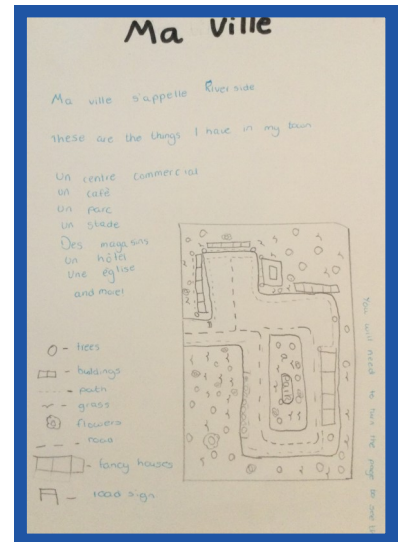 Ma Ville
Ma ville s'appelle Riverside
These are the things I have in my town
Un centre commercial
un café
un parc
un stade
Des magasins
un hôtel
Une église
and more!
- trees
- buildings
- path
- grass
flowers
- road
- fancy houses
- road sign
You will need to turn the page on